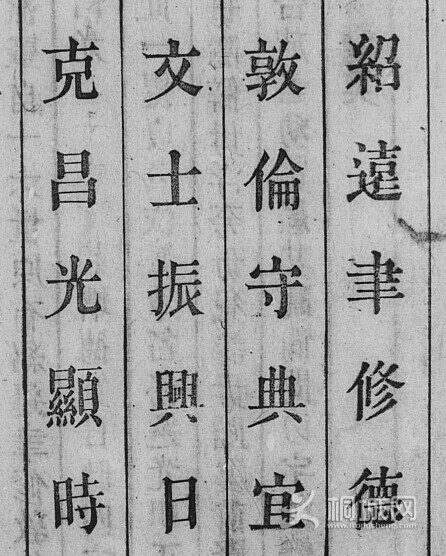 紹遠聿修德
敦倫守典宜
文士振興日
克昌光顯時
桐城网